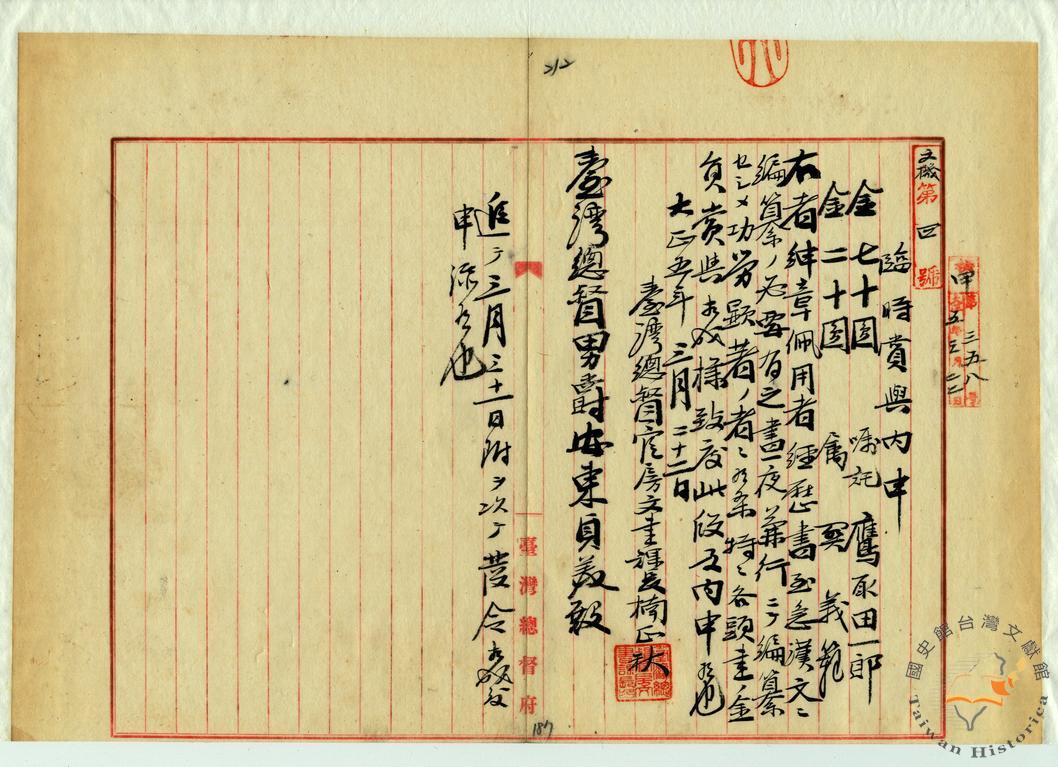 212
文機第四號
臨時賞與內申
金七十圓 嘱託 鷹取田一郎
金二十圓 属 巽義範
右者紳章佩用者經歷書至急漢文ニ
編纂ノ必要有之晝夜兼行ニテ編纂
セシメ功勞顯著ノ者ニ有之候条特ニ各頭書ノ金
員賞與相成様致度此段及內申候也
大正五年三月二十二日
臺灣總督官房文書課長楠正秋
臺灣總督男爵安東貞美殿
追テ三月三十一日附ヲ以テ發令相成
申添候也
臺灣總督府
187
國史館台灣文獻館
Taiwan Historica